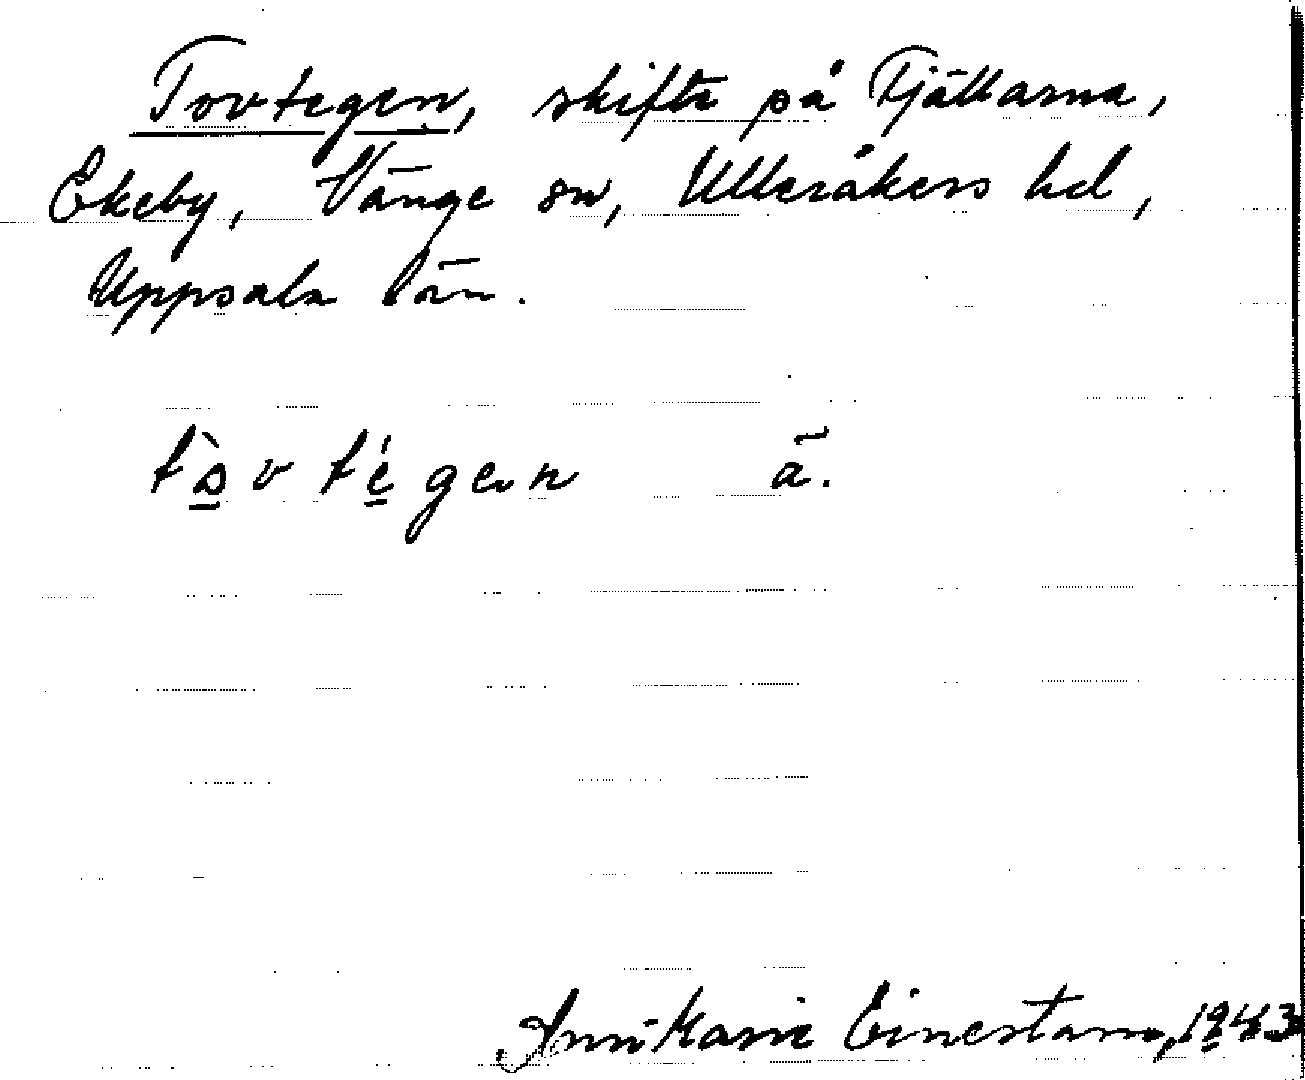 Tovtegen, skifte på Fjällarna,
Ekeby, Vänge sn, Ulleråkers hd,
Uppsala län.
tòvtégen ā.
Ann-Marie Einestam, 1943